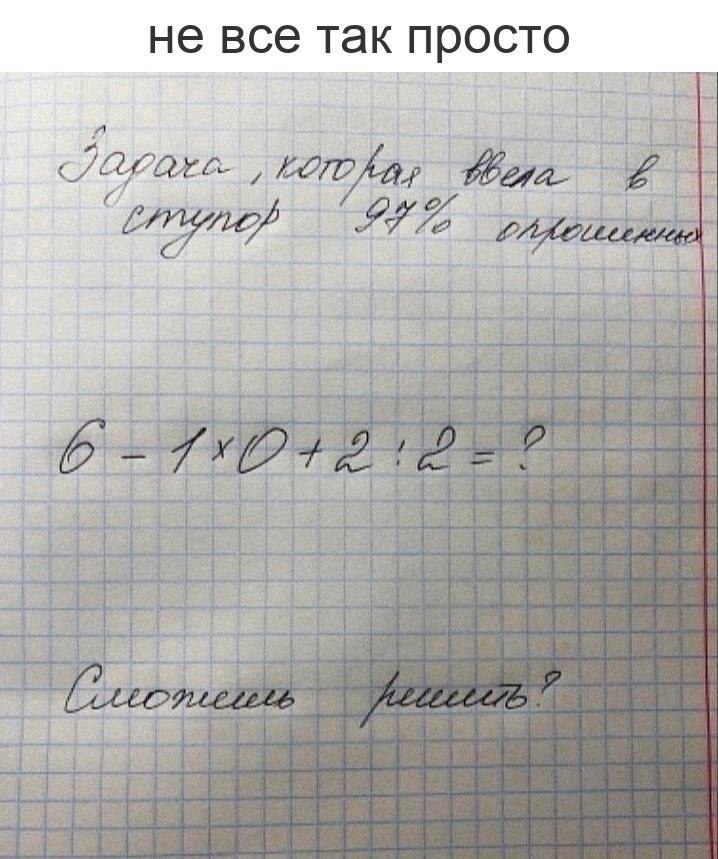 не все так просто
Задача, которая ввела в
ступор 97% опрошенных
6 - 1 × 0 + 2 : 2 = ?
Сможешь решить?